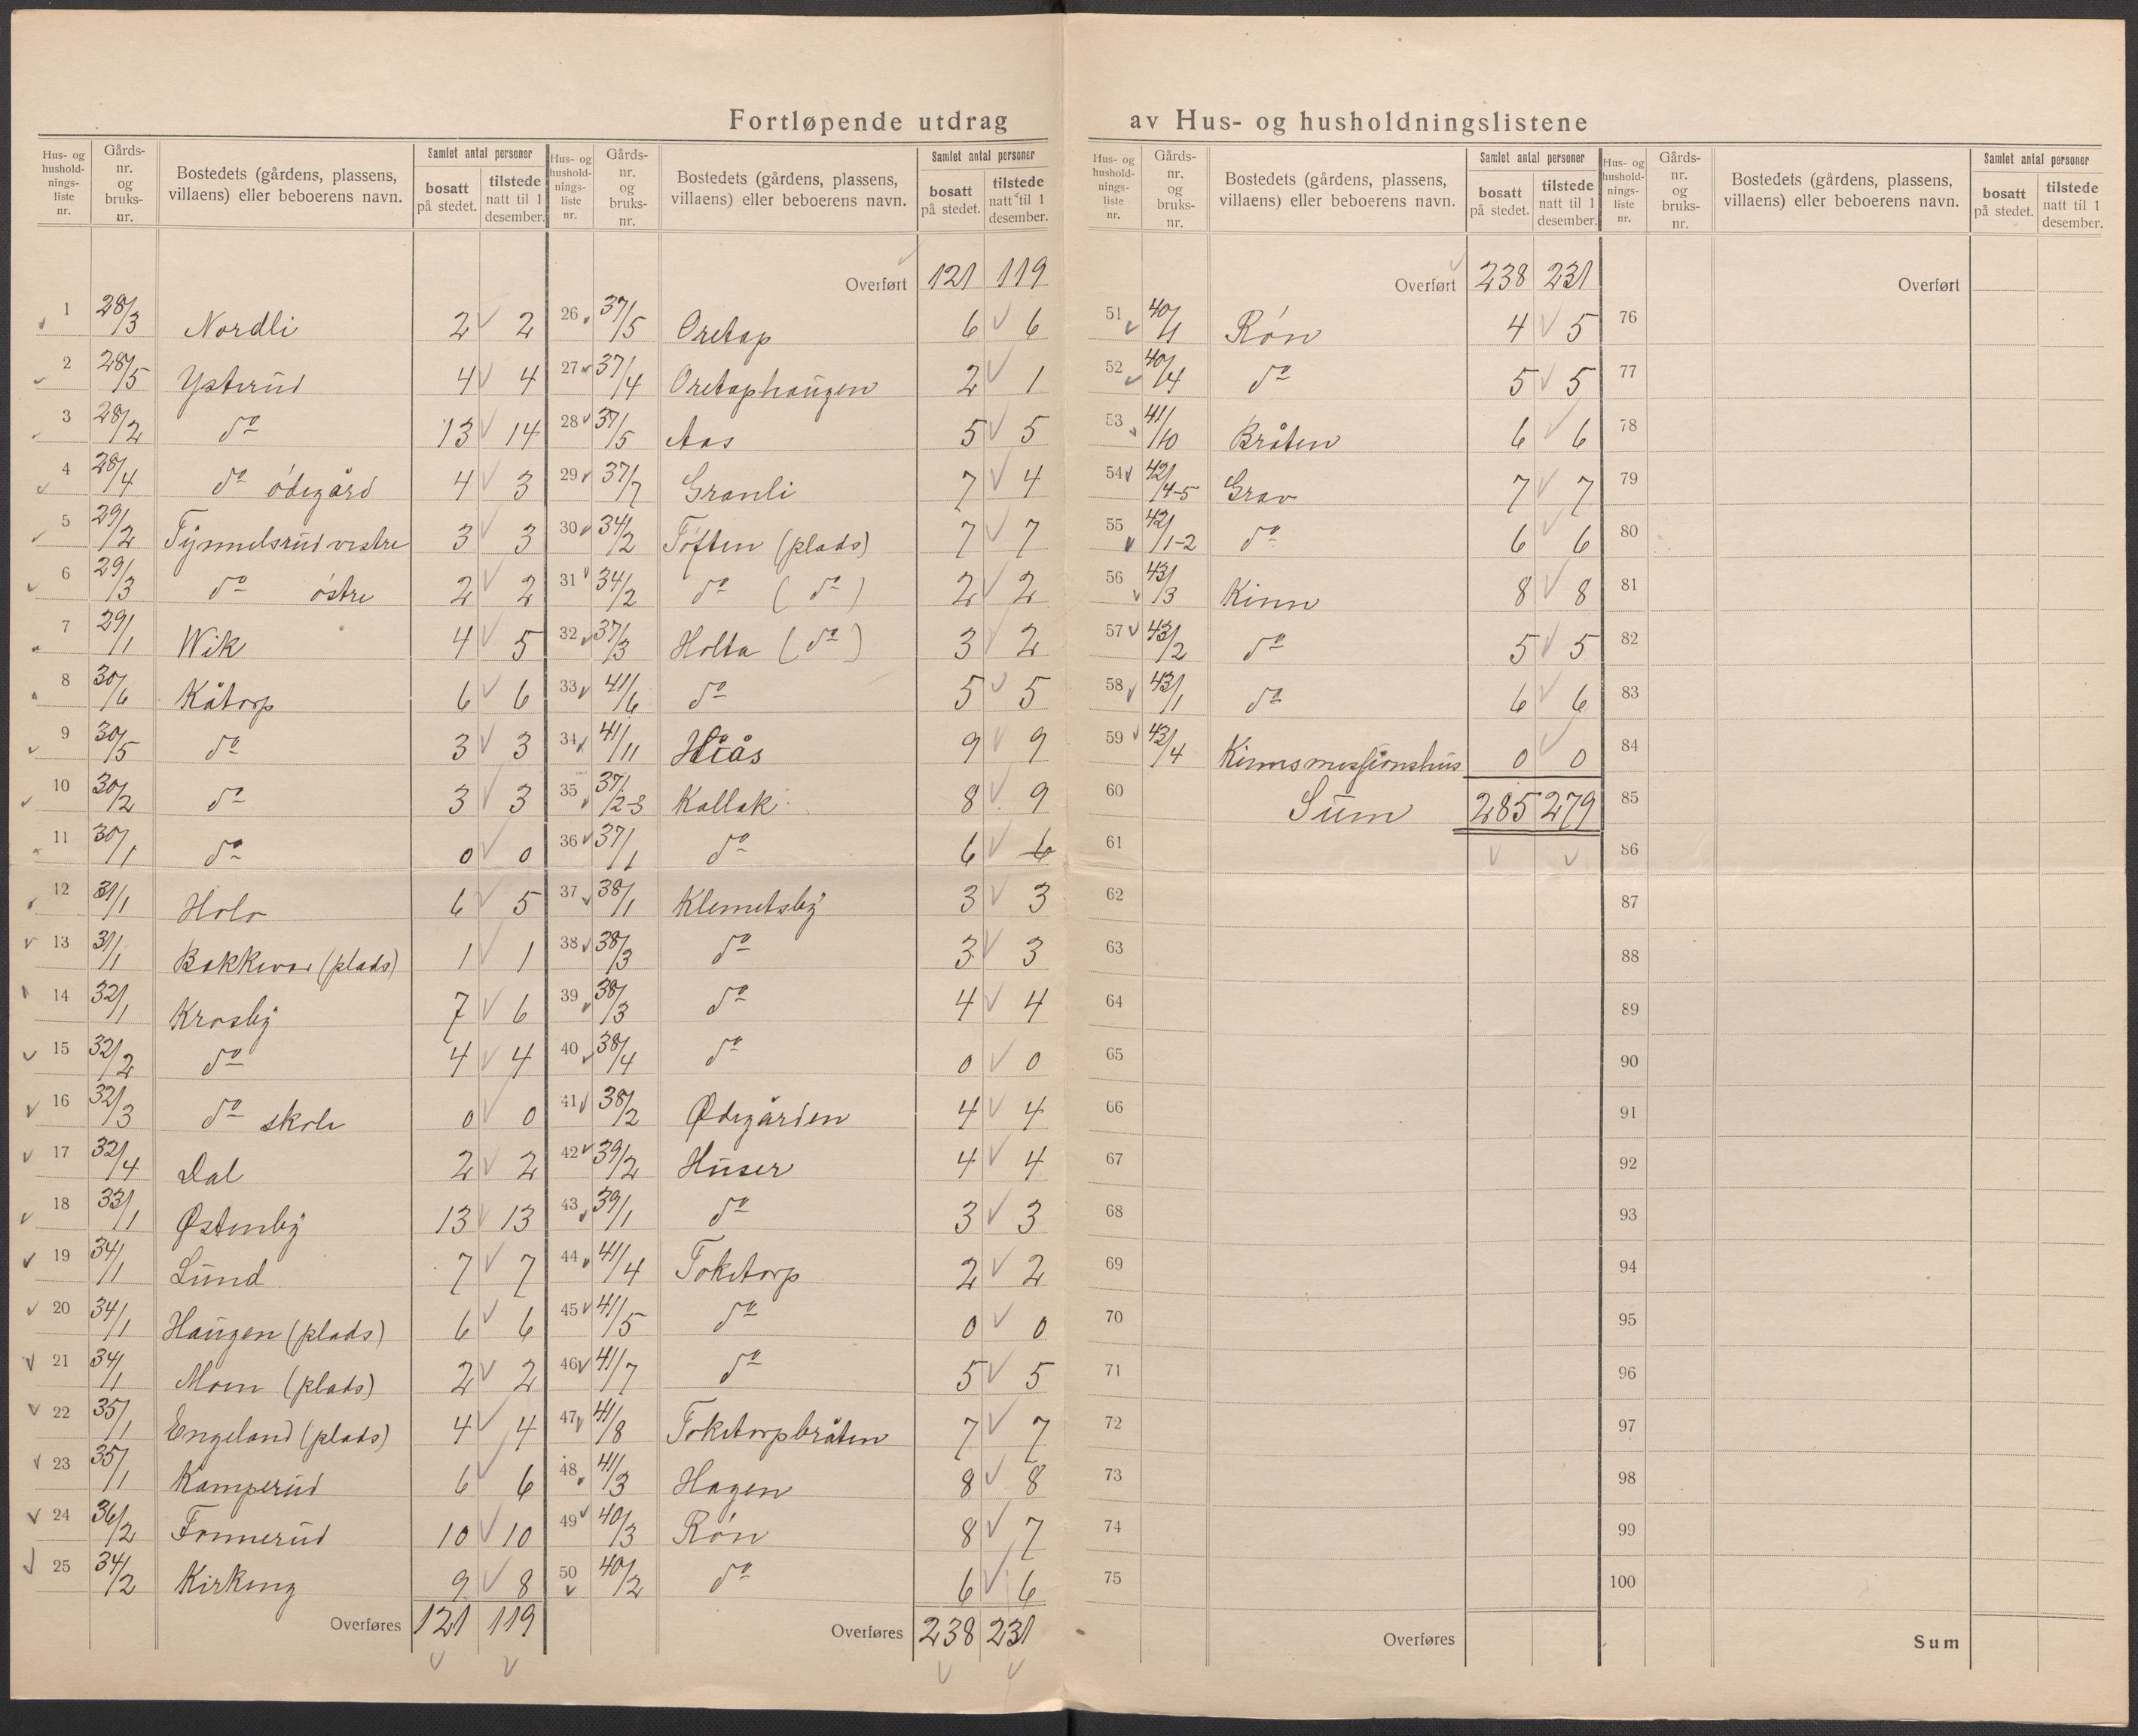 Fortløpende utdrag av Hus- og husholdningslistene
Hus- og hushold-nings-liste nr. | Gårds-nr. og bruks-nr. | Bostedets (gårdens, plassens, villaens) eller beboerens navn. | Samlet antal personer | bosatt på stedet. | tilstede natt til 1 desember.
1 28/3 Nordli 2 2
2 28/5 Ysterud 4 4
3 28/2 do 13 14
4 28/4 do ødegård 4 3
5 29/2 Tymmelsrud vestre 3 3
6 29/3 do østre 2 2
7 29/1 Wik 4 5
8 30/6 Kåtorp 6 6
9 30/5 do 3 3
10 30/2 do 3 3
11 30/1 do 0 0
12 31/1 Holo 6 5
13 31/1 (plads) 1 1
14 32/1 Krosby 7 6
15 32/2 do 4 4
16 32/3 do skole 0 0
17 32/4 Dal 2 2
18 33/1 Østenby 13 13
19 34/1 Lund 7 7
20 34/1 Haugen (plads) 6 6
21 34/1 Moen (plads) 2 2
22 35/1 Engeland (plads) 4 4
23 35/1 Kamperud 6 6
24 36/2 Fonnerud 10 10
25 34/2 Kirkeng 9 8
Overføres 121 119
Hus- og hushold-nings-liste nr. | Gårds-nr. og bruks-nr. | Bostedets (gårdens, plassens, villaens) eller beboerens navn. | Samlet antal personer | bosatt på stedet. | tilstede natt til 1 desember.
Overført 121 119
26 37/5 Oretop 6 6
27 37/4 Oretophaugen 2 1
28 37/5 Aas 5 5
29 37/7 Granli 7 4
30 34/2 Toften (plads) 7 7
31 34/2 do (do) 2 2
32 37/3 Holta (do) 3 2
33 41/6 do 5 5
34 41/11 9 9
35 37/2-3 Kollak 8 9
36 37/1 do 6 6
37 38/1 Klemetsby 3 3
38 38/3 do 3 3
39 38/3 do 4 4
40 38/4 do 0 0
41 38/2 Ødegården 4 4
42 39/2 Huser 4 4
43 39/1 do 3 3
44 41/4 Toketorp 2 2
45 41/5 do 0 0
46 41/7 do 5 5
47 41/8 Toketorpbråten 7 7
48 41/3 Hagen 8 8
49 40/3 Røn 8 7
50 40/2 do 6 6
Overføres 238 231
Hus- og hushold-nings-liste nr. | Gårds-nr. og bruks-nr. | Bostedets (gårdens, plassens, villaens) eller beboerens navn. | Samlet antal personer | bosatt på stedet. | tilstede natt til 1 desember.
Overført 238 231
51 40/1 Røn 4 5
52 40/4 do 5 5
53 41/10 Bråten 6 6
54 42/4-5 Grav 7 7
55 42/1-2 do 6 6
56 43/3 Kinn 8 8
57 43/2 do 5 5
58 43/1 do 6 6
59 43/4 Kinnsmissionshus 0 0
60 Sum 285 279
61
62
63
64
65
66
67
68
69
70
71
72
73
74
75
Overføres
Hus- og hushold-nings-liste nr. | Gårds-nr. og bruks-nr. | Bostedets (gårdens, plassens, villaens) eller beboerens navn. | Samlet antal personer | bosatt på stedet. | tilstede natt til 1 desember.
Overført
76
77
78
79
80
81
82
83
84
85
86
87
88
89
90
91
92
93
94
95
96
97
98
99
100
Sum